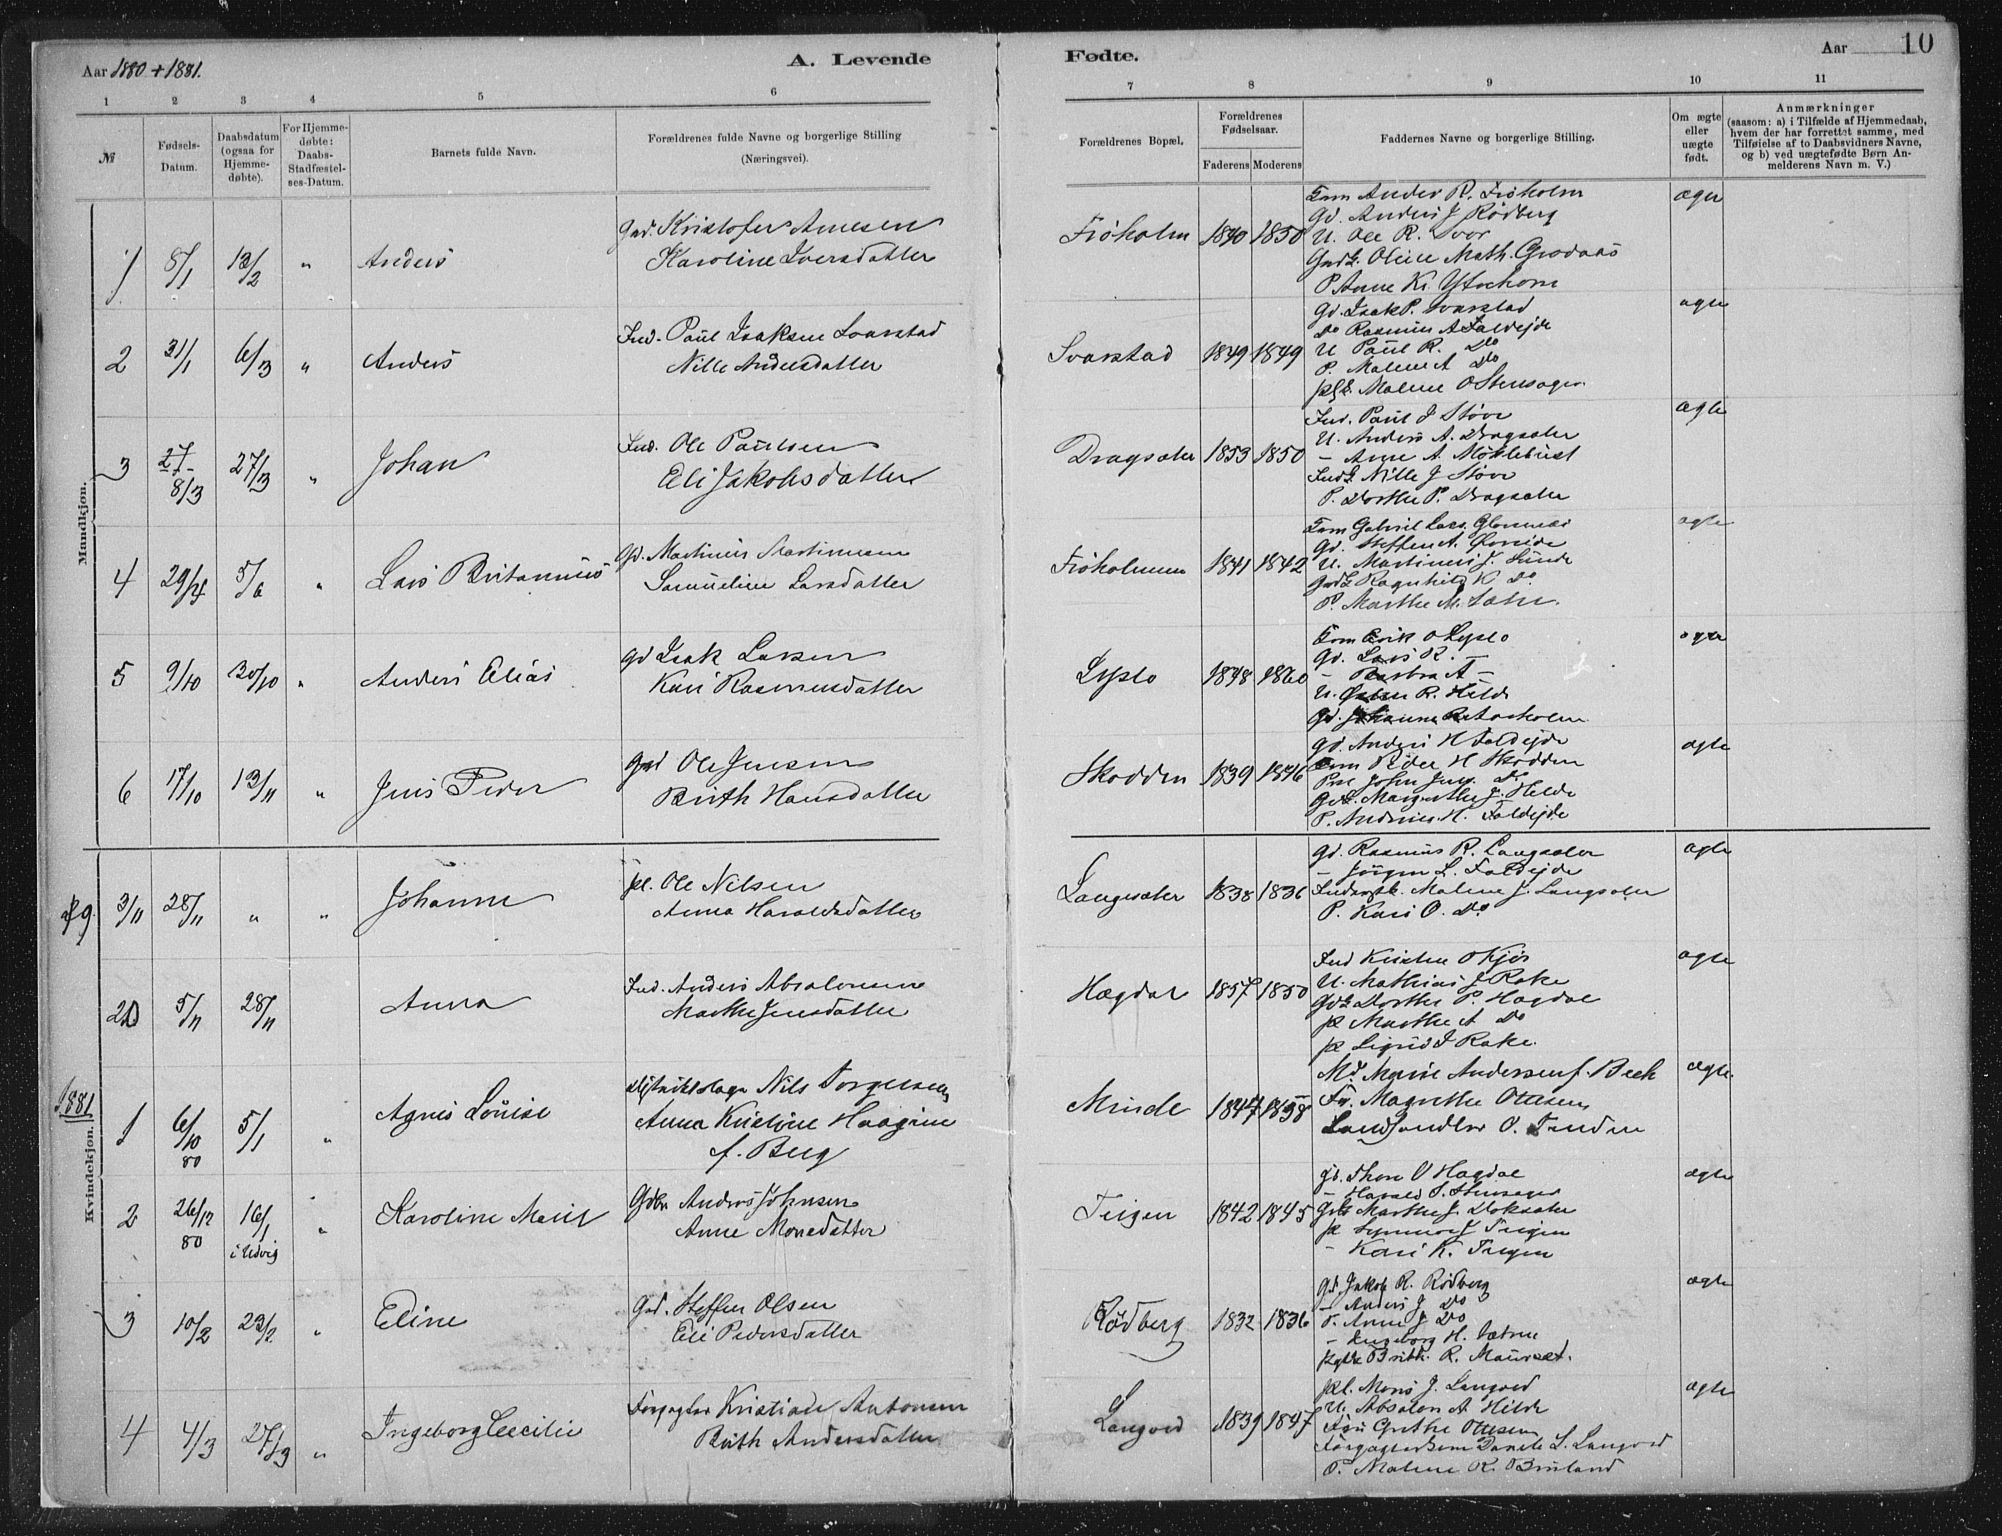 Aar 1880 + 1881.
A. Levende
Fødte.
Aar 10
1 2 3 4 5 6 7 8 9 10 11
№
Fødsels-
Datum.
Daabsdatum
(ogsaa for
Hjemme-
døbte).
For Hjemme-
døbte:
Daabs-
Stadfæstel-
ses-Datum.
Barnets fulde Navn.
Forældrenes fulde Navne og borgerlige Stilling
(Næringsvei).
Forældrenes Bopæl.
Forældrenes
Fødselsaar.
Faderens Moderens
Faddernes Navne og borgerlige Stilling.
Om ægte
eller
uægte
født.
Anmærkninger
(saasom: a) i Tilfælde af Hjemmedaab,
hvem der har forrettet samme, med
Tilføielse af to Daabsvidners Navne,
og b) ved uægtefødte Børn An-
melderens Navn m. V.)
Mandkjøn.
1 8/1 13/2 " Anders
Kristofer Arnesen
Karoline Iversdatter
Frøholm 1840 1850
Anders R. Frøholm
Gd. Anders J Rødberg
U. Ole R. Svor
Oline Math. Grodaas
P. Anne K.
2 31/1 6/3 " Anders
Ind. Paul Isaksen Svarstad
Nille Andersdatter
Svarstad 1849 1849
Gd. Isak P. Svarstad
Do Rasmus A Faldejde
U Paul R. Do
P. Malene A Do
Malene O Stensager
ægte
3 27/3 " Johan
8/3
Ind. Ole Paulsen
Eli Jakobsdatter
Dragsæter 1853 1850
Ind. Paul J Støve
U. Anders A. Dragsæter
– Anne A. Myklebust
Nille J Støve
P. Dorthe P. Dragsæter
ægte
4 29/4 5/6 " Lars Britannius
Gd. Martinus Martinussen
Samueline Larsdatter
Frøholmen 1841 1842
Gabriel Lars.
Gd. Steffen A.
U. Martinus J. Lunde
Ragnhild K Do
P. Marthe M. Sætre
ægte
5 9/10 30/10 " Anders Elias
Gd Isak Larsen
Kari Rasmusdatter
Lyslo 1848 1860
Erik O Lyslo
Gd. Lars R. –
– Rasbra A –
U. R. Hilde
Gd. Johanne
ægte
6 17/10 13/11 " Jens Peder
Ole Jensen
Brith Hansdatter
Skodden 1839 1846
Gd. Anders H Faldejde
Peder H Skodden
John Jens. Do
Margrethe J. Hilde
P. Andrine H. Faldejde
ægte
Kvindekjøn.
9. 3/11 28/11 " " Johanne
pl. Ole Nilsen
Anna Haraldsdatter
Langesæter 1838 1836
Gd. Rasmus R. Langsæter
– Jørgen L. Faldejde
Malene J. Langsæter
P. Kari O. Do
ægte
5/11 28/11 Anna
Ind. Anders Absalonsen
Marthe Jensdatter
Hægdal 1857 1850
Ind Kristen O Kjøs
U. Mathias J Rake
Dorthe P. Hagdal
Marthe A Do
Sigrid J Rake.
ægte
1881
1 6/10 80 5/1 " Agnes Louise
Nils Torgersen
Anna Kristine Haagine
f. Berg
Minde 1847 1858
Marie Andersen f. Beck
Fr. Magrethe Ottesen
Landhandler O. Tenden
ægte.
2 26/12 80 16/1 i Udvig " Karoline Marie
Anders Johnsen
Anne Monsdatter
Teigen 1842 1845
Gd. Thore O Hagdal
– Harald S. Stensager
Marthe J. Doksæter
Synneve J Teigen
– Kari K. Teigen
ægte
3 10/2 23/2 " Eline
Gd. Steffen Olsen
Eli Pedersdatter
Rødberg 1832 1836
Gd. Jakob R. Rødberg
– Anders J Do
P. Anne J Do
– Ingeborg H. Sætre
Brith R. Maurset.
ægte
4 4/3 27/3 " Ingeborg Cecilie
Forpagter Kristian Antonsen
Brith Andersdatter
Langved 1839 1847
pl. Mons J. Langved
U. Absalon A Hilde
Grethe Ottesen
Daniel L. Langved
P. Malene R. Bruland
ægte